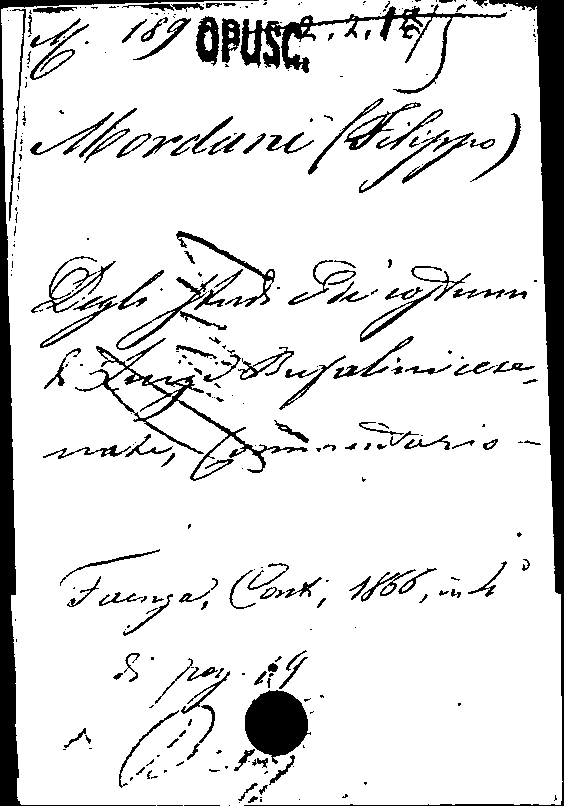 M. 189 OPUSC. 2.2.1875
Mordani (Filippo)
Degli studi e de' costumi
di Luigi Bufalini cese-
nate, Commentario -
Faenza, Conti, 1866, in 4°
di pag. 19